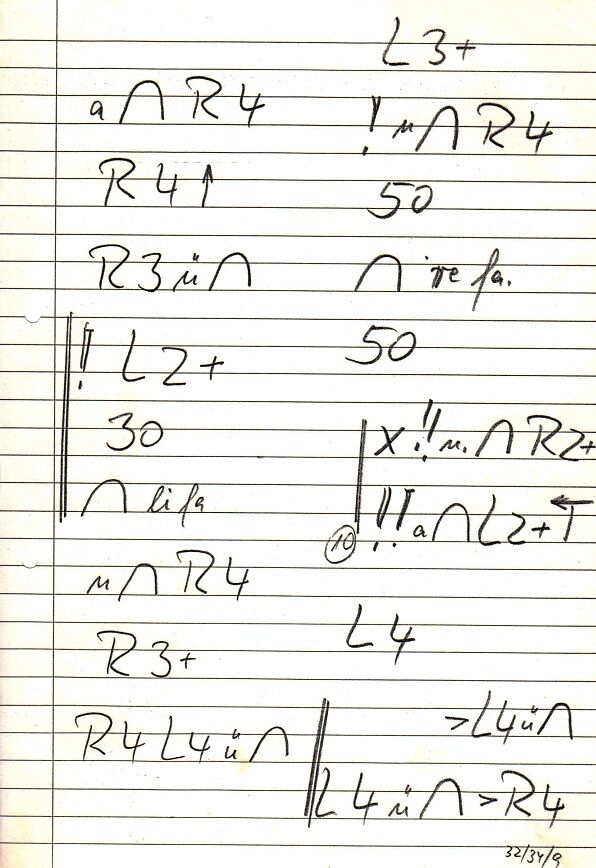 a ∩ R 4
R 4 ↑
R 3 ü ∩
! L 2 +
30
∩ li fa
u ∩ R 4
R 3 +
R 4 L 4 ü ∩
L 3 +
! u ∩ R 4
50
∩ re fa.
50
X !! u. ∩ R 2 +
10 !! a ∩ L 2 + T
L 4
> L 4 ü ∩
L 4 ü ∩ > R 4
32/34/9